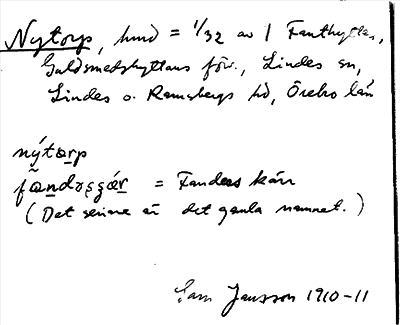 Nytorp, hmd = 1/32 av 1 Fanthyttan,
Guldsmedshyttans förs., Lindes sn,
Lindes o. Ramsbergs hd, Örebro län
nýtɷrp
= Fanders kärr
(Det senare är det gamla namnet.)
Sam Jansson 1910-11